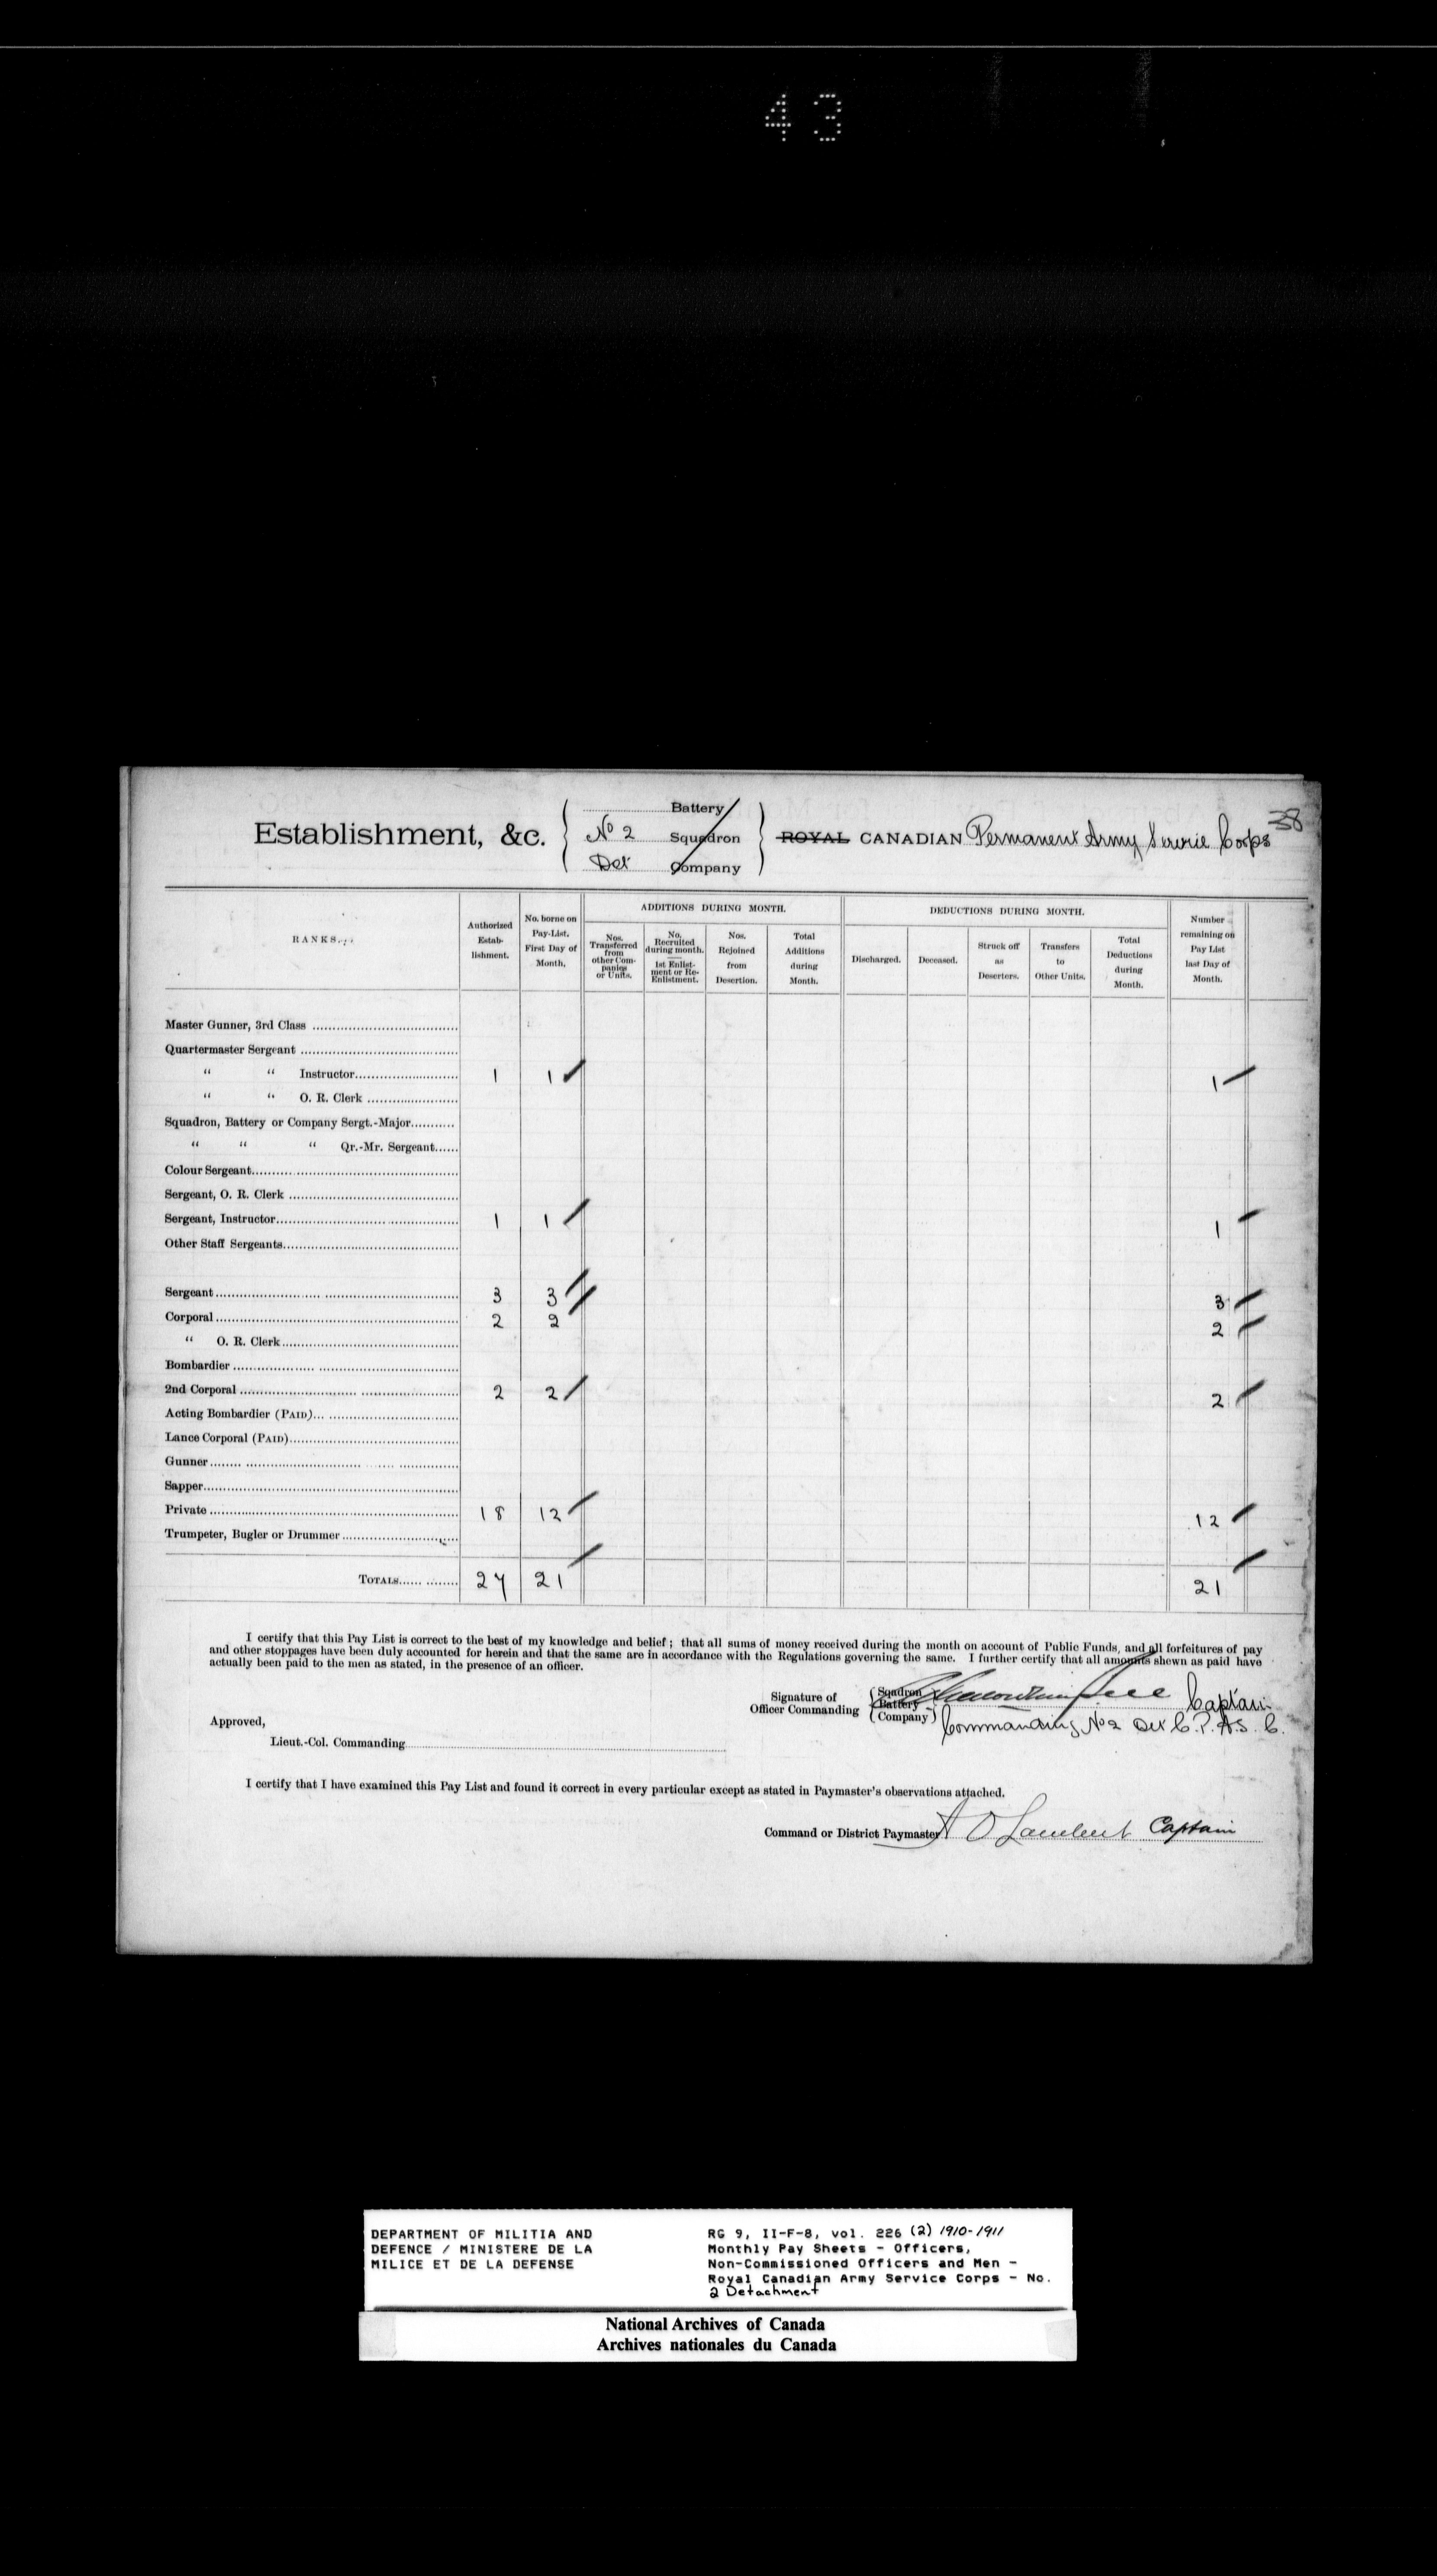 43
38
Battery
Establishment, &c. No 2 Squadron ROYAL CANADIAN Permanent Army Service Corps
Det Company
RANKS.
Authorized Estab-lishment.
No. borne on Pay-List. First Day of Month.
ADDITIONS DURING MONTH.
Nos. Transferred from other Companies or Units.
No. Recruited during month. 1st Enlistment or Re-Enlistment.
Nos. Rejoined from Desertion.
Total Additions during Month.
DEDUCTIONS DURING MONTH.
Discharged.
Deceased.
Struck off as Deserters.
Transfers to Other Units.
Total Deductions during Month.
Number remaining on Pay List last Day of Month.
Master Gunner, 3rd Class
Quartermaster Sergeant
" " Instructor 1 1 1
" " O. R. Clerk
Squadron, Battery or Company Sergt.-Major
" " " Qr.-Mr. Sergeant
Colour Sergeant
Sergeant, O. R. Clerk
Sergeant, Instructor 1 1 1
Other Staff Sergeants
Sergeant 3 3 3
Corporal 2 2 2
" O. R. Clerk
Bombardier
2nd Corporal 2 2 2
Acting Bombardier (PAID)
Lance Corporal (PAID)
Gunner
Sapper
Private 18 12 12
Trumpeter, Bugler or Drummer
TOTALS 27 21 21
I certify that this Pay List is correct to the best of my knowledge and belief; that all sums of money received during the month on account of Public Funds, and all forfeitures of pay
and other stoppages have been duly accounted for herein and that the same are in accordance with the Regulations governing the same. I further certify that all amounts shewn as paid have
actually been paid to the men as stated, in the presence of an officer.
Signature of Officer Commanding Sqadron Battery Company Captain
Commanding No 2 Det C.P.A.S.C.
Approved,
Lieut.-Col. Commanding
I certify that I have examined this Pay List and found it correct in every particular except as stated in Paymaster's observations attached.
Command or District Paymaster A O Lambert Captain
DEPARTMENT OF MILITIA AND
DEFENCE / MINISTERE DE LA
MILICE ET DE LA DEFENSE
RG 9, II-F-8, vol. 226 (2) 1910-1911
Monthly Pay Sheets - Officers,
Non-Commissioned Officers and Men -
Royal Canadian Army Service Corps - No.
2 Detachment
National Archives of Canada
Archives nationales du Canada